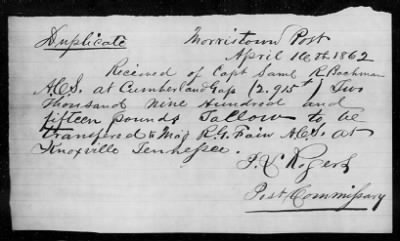 Duplicate Morristown Post
April 16th 1862
Received of Capt Saml R Bachman
A.C.S. at Cumberland Gap (2.915 ) Two
thousand nine Hundred and
fifteen pounds Tallow to be
transfered to Maj R.G. Fain A.C.S. at
Knoxville Tennessee.
Rogers
Post Commissary